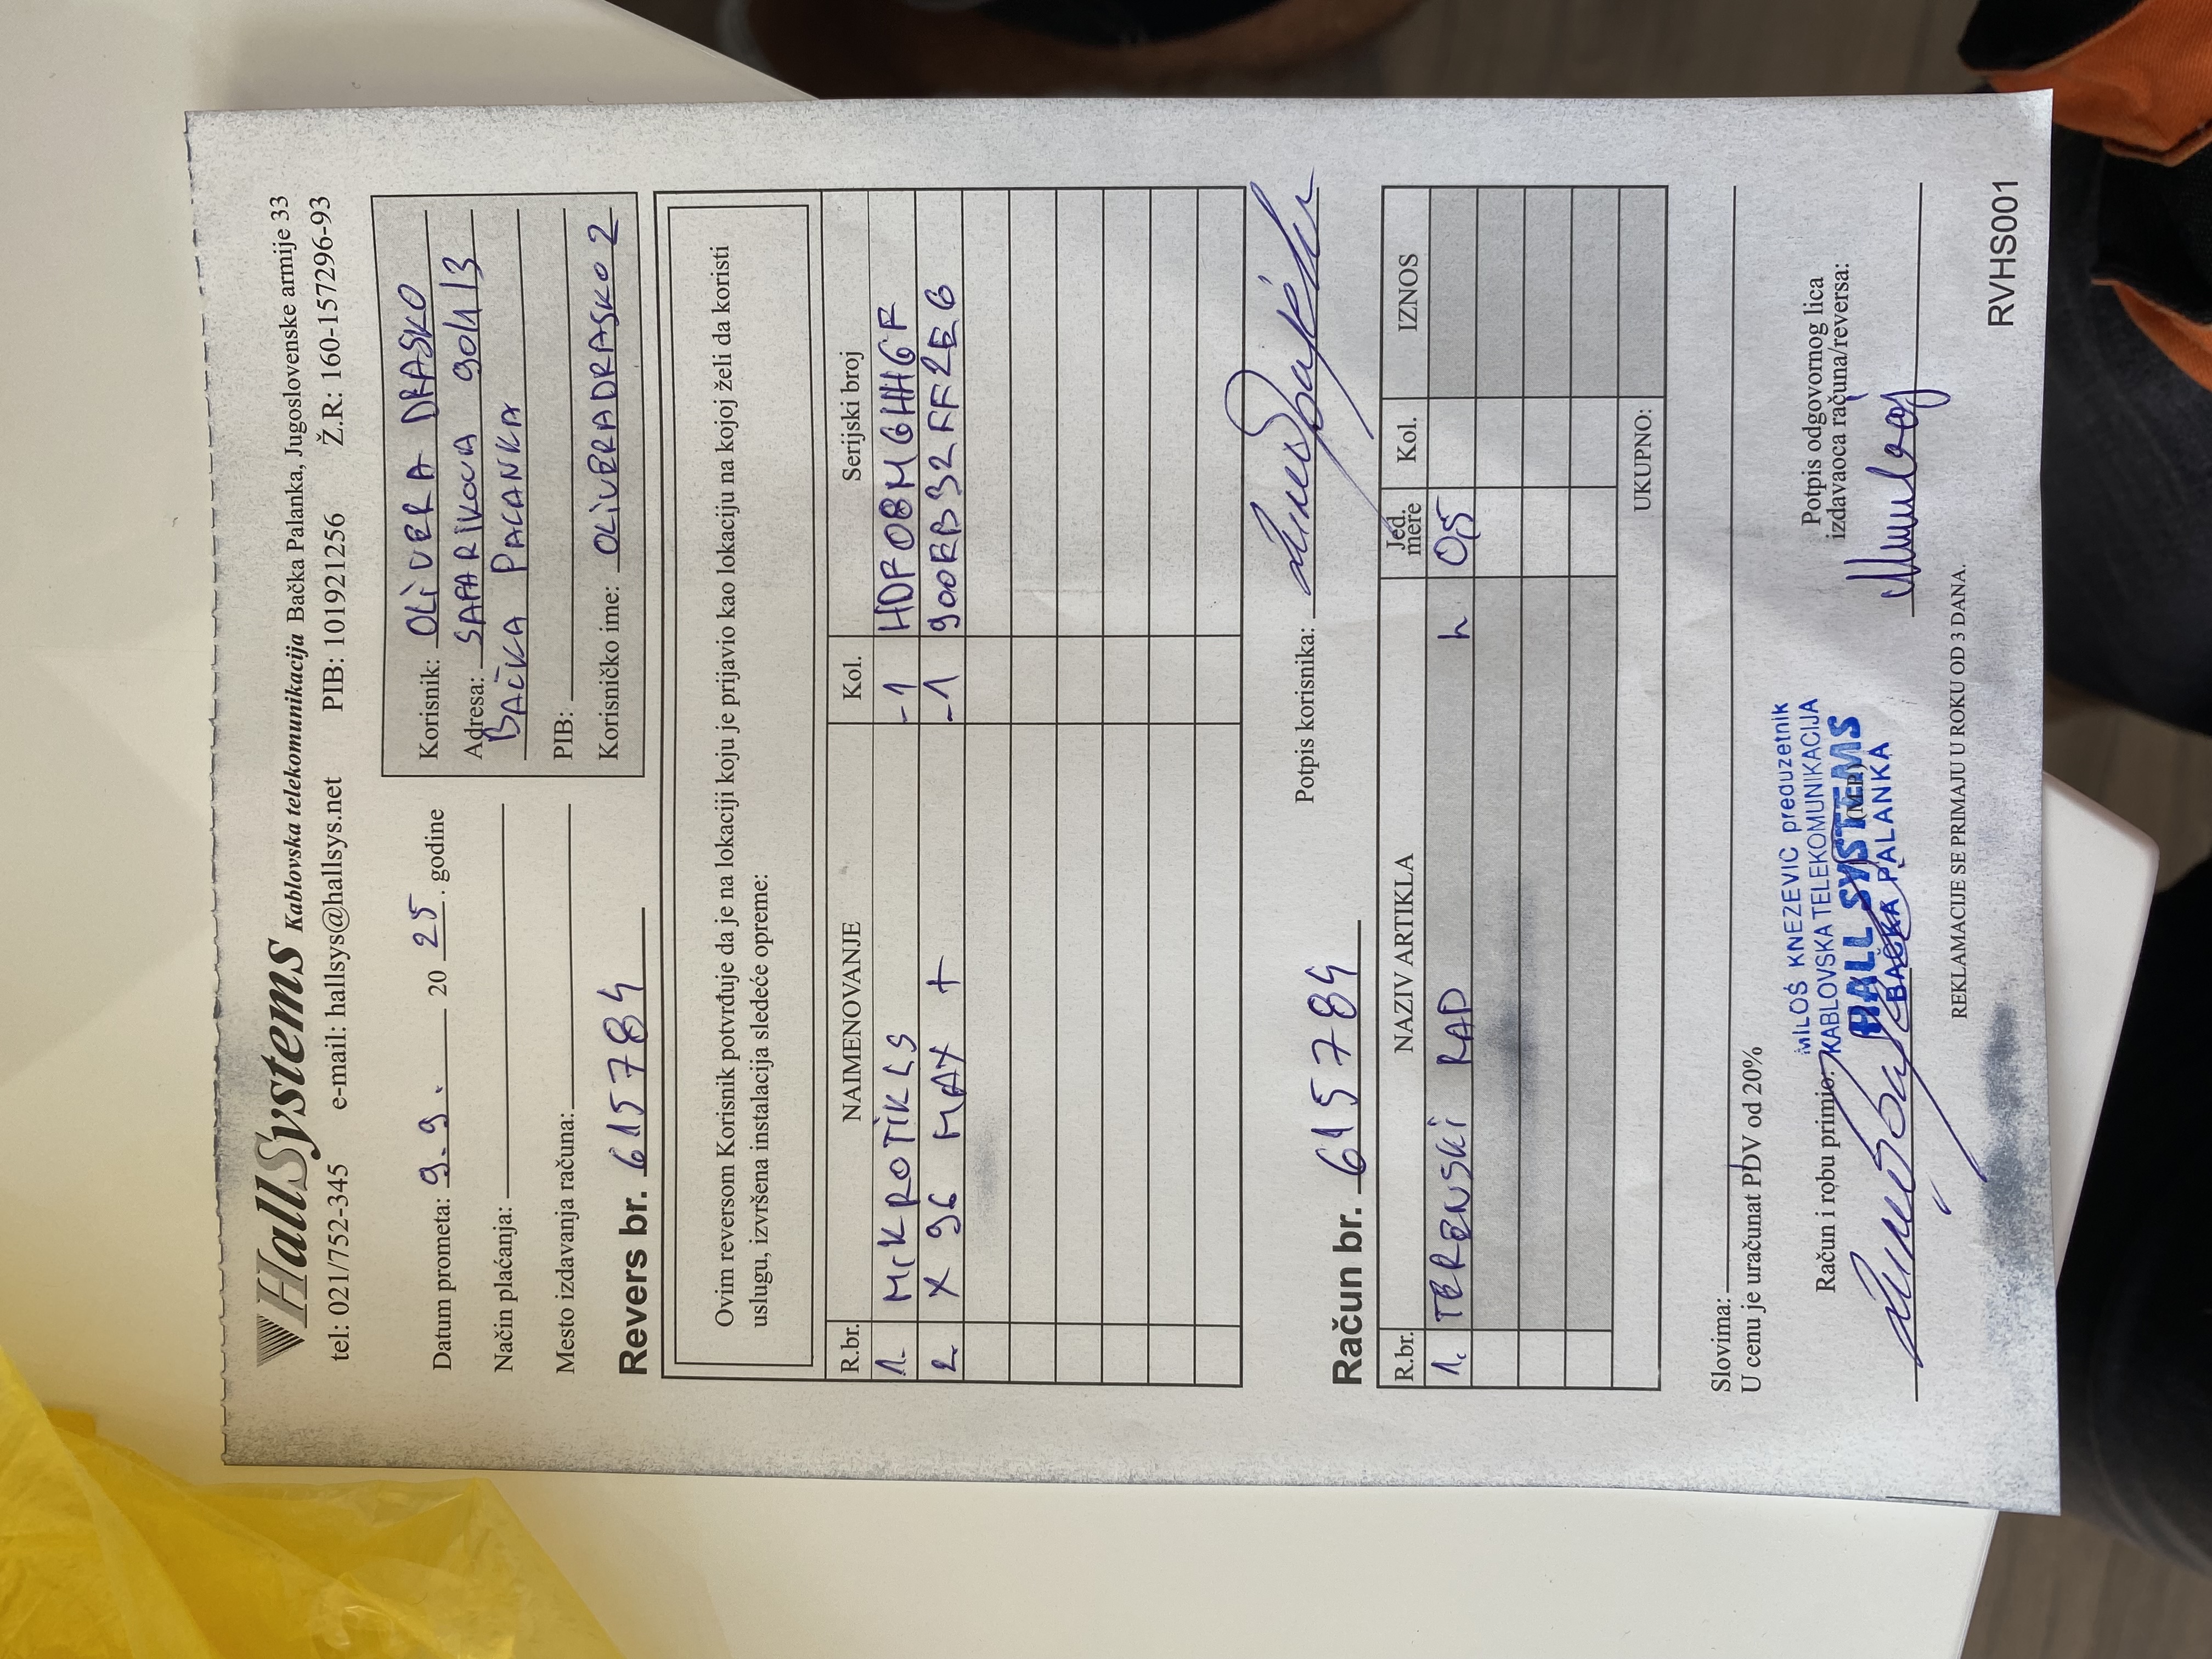 HallSystems Kablovska telekomunikacija Bačka Palanka, Jugoslovenske armije 33
tel: 021/752-345 e-mail: hallsys@hallsys.net PIB: 101921256 Ž.R: 160-157296-93
Datum prometa: 9.9. 20 25. godine
Način plaćanja:
Mesto izdavanja računa:
Korisnik: OLIVERA DRAŠKO
Adresa: ŠAFARIKOVA
BAČKA PALANKA
PIB:
Korisničko ime: OLIVERADRASKO2
Revers br. 615784
Ovim reversom Korisnik potvrđuje da je na lokaciji koju je prijavio kao lokaciju na kojoj želi da koristi
uslugu, izvršena instalacija sledeće opreme:
R.br. NAIMENOVANJE Kol. Serijski broj
1. MIKROTIK -1 HDF08MGHHGF
2. X96 MAX + -1 900EB32FF2E6
Potpis korisnika:
Račun br. 615784
R.br. NAZIV ARTIKLA Jed. mere Kol. IZNOS
1. TERENSKI RAD h 0,5
UKUPNO:
Slovima:
U cenu je uračunat PDV od 20%
Račun i robu primio:
MILOŠ KNEZEVIC preduzetnik
KABLOVSKA TELEKOMUNIKACIJA
HALL SYSTEMS
BAČKA PALANKA
Potpis odgovornog lica
izdavaoca računa/reversa:
REKLAMACIJE SE PRIMAJU U ROKU OD 3 DANA.
RVHS001